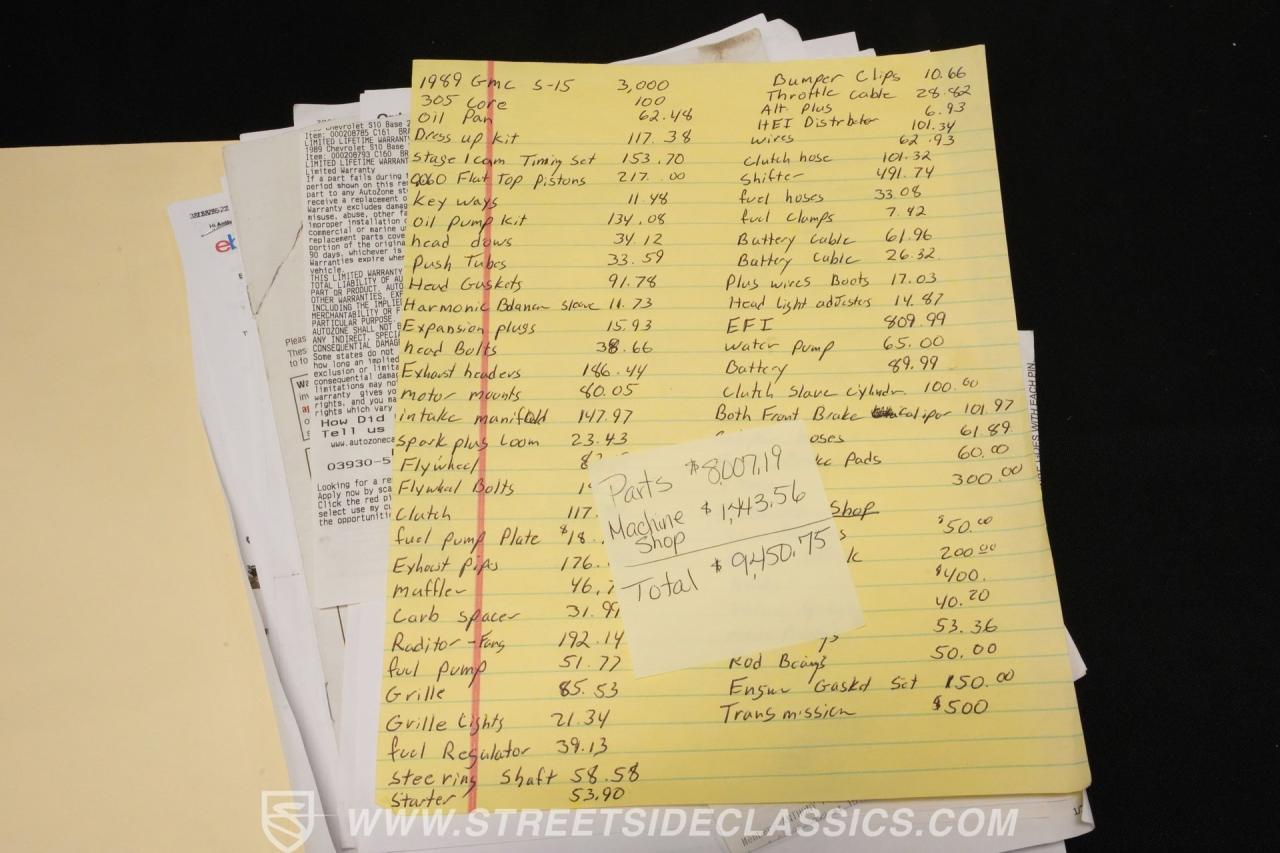 1989 Gmc S-15 3,000
305 Core 100
Oil Pan 62.48
Dress up kit 117.38
Stage 1 cam Timing Set 153.70
Flat Top Pistons 217.00
Key ways 11.48
Oil pump kit 134.08
head dows 34.12
Push Tubes 33.59
Head Gaskets 91.78
Harmonic Balancer sleeve 11.73
Expansion plugs 15.93
head Bolts 38.66
Exhaust headers 186.44
motor mounts 80.05
intake manifold 147.97
Spark plug Loom 23.43
Flywheel
Flywheel Bolts
Clutch 117.
fuel pump Plate $18.
Exhaust pips 176.
muffler 46.
Carb spacer 31.99
Raditor - Fans 192.14
fuel pump 51.77
Grille 85.53
Grille Lights 21.34
fuel Regulator 39.13
Steering Shaft 58.58
Starter 53.90
Bumper Clips 10.66
Throttle Cable 28.82
Alt Plus 6.93
HEI Distrbutor 101.34
wires 62.93
Clutch hose 101.32
Shifter 491.74
fuel hoses 33.08
fuel Clamps 7.42
Battery Cable 61.96
Battery Cable 26.32
Plus wires Boots 17.03
Head light adjusters 14.87
EFI 809.99
Water Pump 65.00
Battery 89.99
Clutch Slave Cylinder 100.00
Both Front Brake Caliper 101.97
oses 61.89
Pads 60.00
300.00
Shop
$50.00
200.00
$400.
40.20
53.36
Rod 50.00
Engine Gasket Set 150.00
Transmission $500
Parts $8,007.19
Machine Shop $1,443.56
Total $9,450.75
Chevrolet S10 Base 2
Item: 000208785 C161 BR
LIMITED LIFETIME WARRANT
1989 Chevrolet S10 Base
Item: 000208793 C160 BR
LIMITED LIFETIME WARRANT
Limited Warranty
If a part fails during
period shown on this re
part to any AutoZone st
receive a replacement o
Warranty excludes damag
misuse, abuse, other fa
improper installation
commercial or marine u
replacement parts cove
portion of the origina
90 days, whichever is
Warranties expire when
vehicle.
THIS LIMITED WARRANTY
TOTAL LIABILITY OF AU
PART OR PRODUCT. AUTO
OTHER WARRANTIES, EXP
INCLUDING THE IMPLIE
MERCHANTABILITY OR F
PARTICULAR PURPOSE.
AUTOZONE SHALL NOT B
ANY INDIRECT, SPECI
CONSEQUENTIAL DAMAG
Some states do not
how long an implied
exclusion or limita
consequential damag
limitations may no
warranty gives yo
rights, and you ma
rights which vary
How Did
Tell us
www.autozoneca
03930-5
Looking for a re
Apply now by sca
Click the red pi
select use my cu
the opportuniti
Pleas
Thes
to fo
WWW.STREETSIDECLASSICS.COM